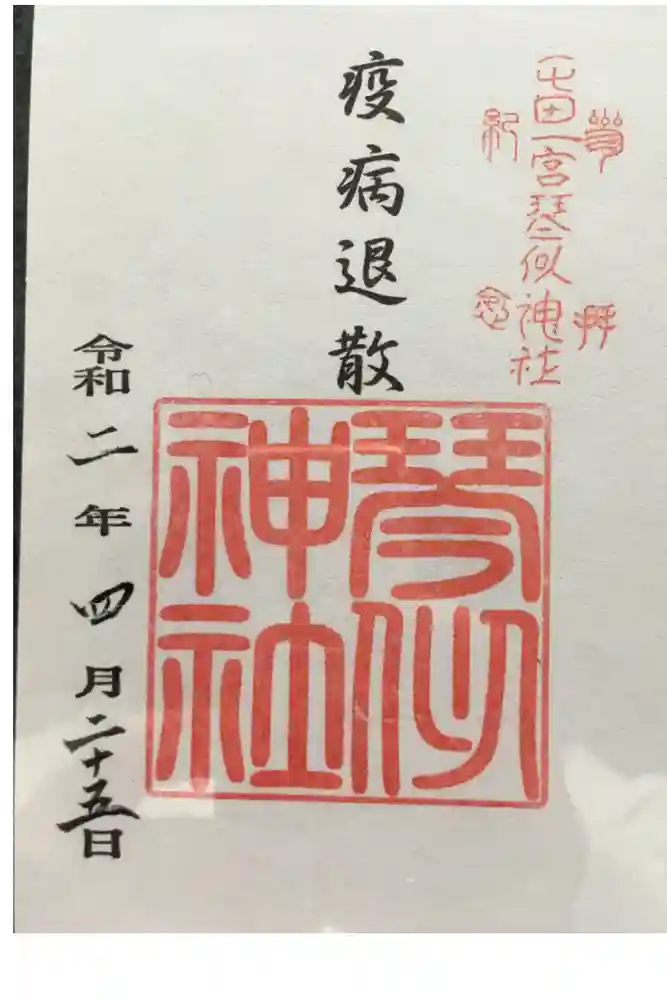 屯田一宮琴似神社
参拝
紀念
疫病退散
琴似
神社
令和二年四月二十五日